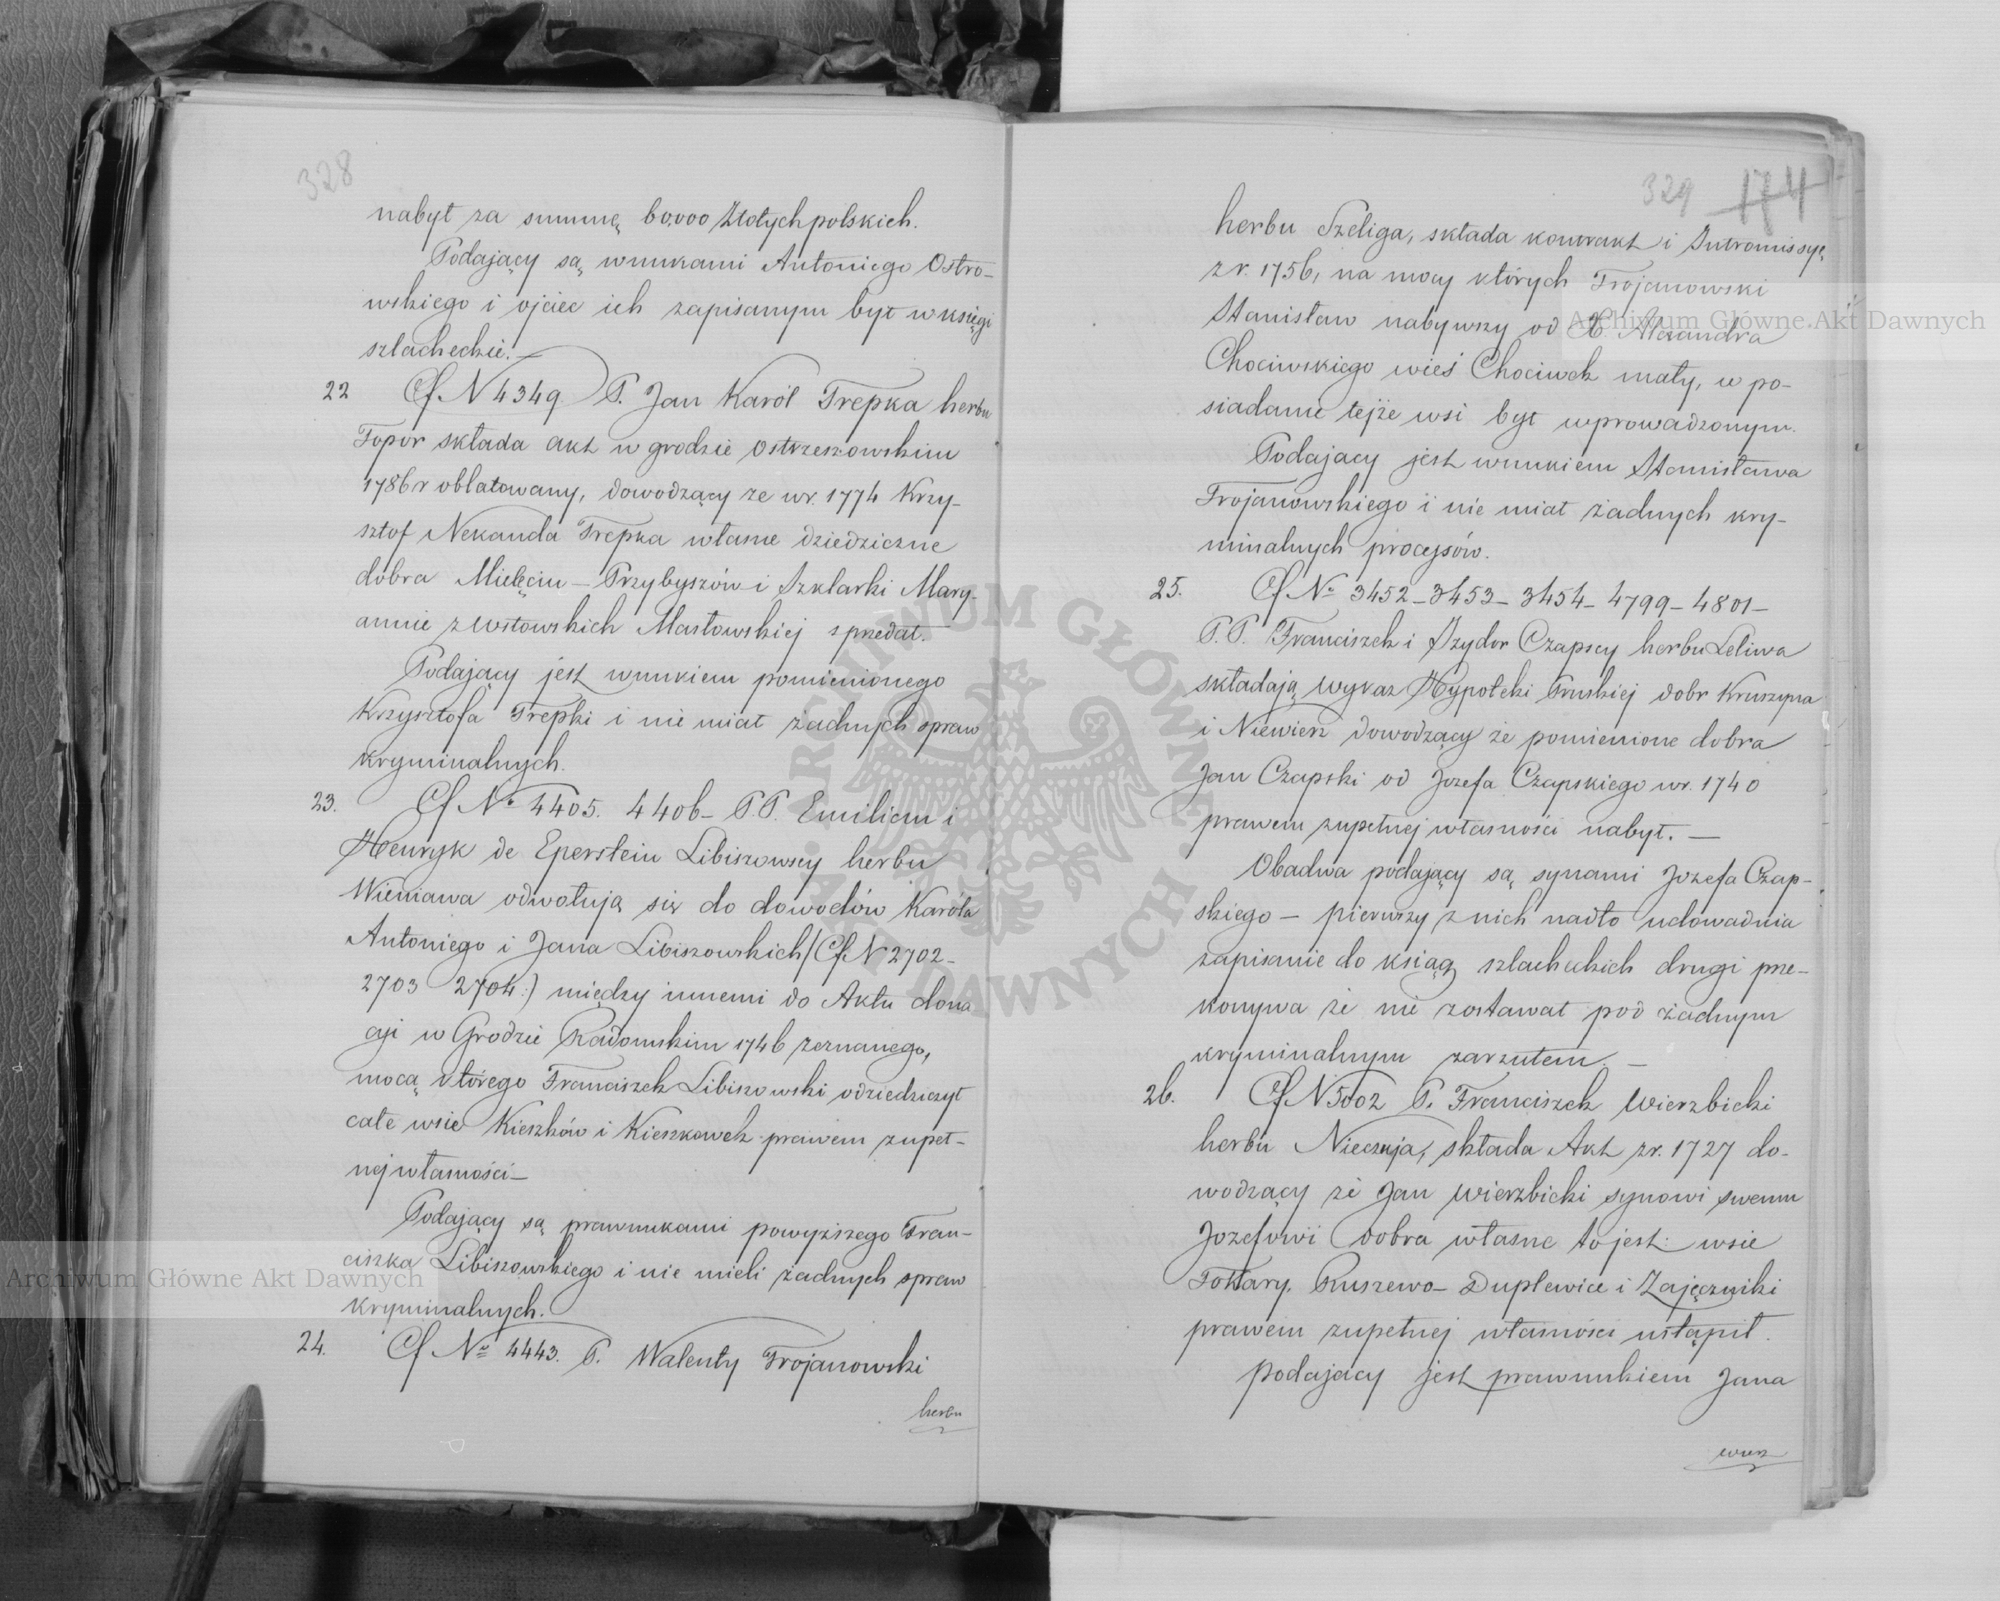 328
nabył za summę 60,000 Złotych polskich.
Podający są wnukami Antoniego Ostro-
wskiego i ojciec ich zapisanym był w księgi
szlacheckie.—
22 Cf. N 4349. P. Jan Karól Trepka herbu
Topór składa akt w grodzie Ostrzeszowskim
1786 r oblatowany, dowodzący ze w r. 1774 Krzy-
sztof Nekanda Trepka własne dziedziczne
dobra Mielęcin – Przybyszów i Szklarki Mary-
annie z Wstowskich Masłowskiej sprzedał.—
Podający jest wnukiem pomienionego
Krzysztofa Trepki i nie miał żadnych spraw
kryminalnych.
23. Cf. No 4405. 4406 – P.P. Emilian i
Henryk de Eperstein Libiszowscy herbu
Wieniawa odwołują się do dowodów Karóla
Antoniego i Jana Libiszowskich /Cf. N 2702–
2703 2704:) między innemi do Aktu dona
cji w Grodzie Radomskim 1746 zeznanego,
mocą którego Franciszek Libiszowski odziedziczył
całe wsie Kieszków i Kieszkowek prawem zupeł-
nej własności –
Podający są prawnukami powyższego Fran-
ciszka Libiszowskiego i nie mieli żadnych spraw
kryminalnych.
24. Cf. No 4443. P. Walenty Trojanowski
herbu
329 174
herbu Szeliga, składa kontrakt i Intromissyę
z r. 1756, na mocy których Trojanowski
Stanisław nabywszy od X. Alexandra
Chociwskiego wieś Chociwek mały, w po-
siadanie tejże wsi był wprowadzonym.
Podajacy jest wnukiem Stanisława
Trojanowskiego i nie miał żadnych kry-
minalnych processów.
25. Cf. No 3452 – 3453 – 3454 – 4799 – 4801 –
P.P. Franciszek i Izydor Czapscy herbu Leliwa
składają wykaz Hypoteki Pruskiej dobr Kruszyna
i Niewierz dowodzący że pomienione dobra
Jan Czapski od Jozefa Czapskiego w r. 1740
prawem zupełnej własności nabył. —
Obadwa podający są synami Jozefa Czap-
skiego – pierwszy z nich nadto udowadnia
zapisanie do ksiąg szlacheckich drugi prze-
konywa że nie zostawał pod żadnym
kryminalnym zarzutem —
26. Cf. N 5002 P. Franciszek Wierzbicki
herbu Nieczuja, składa Akt z r. 1727 do-
wodzący że Jan Wierzbicki synowi swemu
Jozefowi dobra własne to jest: wsie
Tokary, Ruszewo – Duplewice i Zajęczniki
prawem zupełnej własności ustąpił.
podajacy jest prawnukiem Jana
wierz
Archiwum Główne Akt Dawnych
Archiwum Główne Akt Dawnych
ARCHIWUM GŁÓWNE AKT DAWNYCH